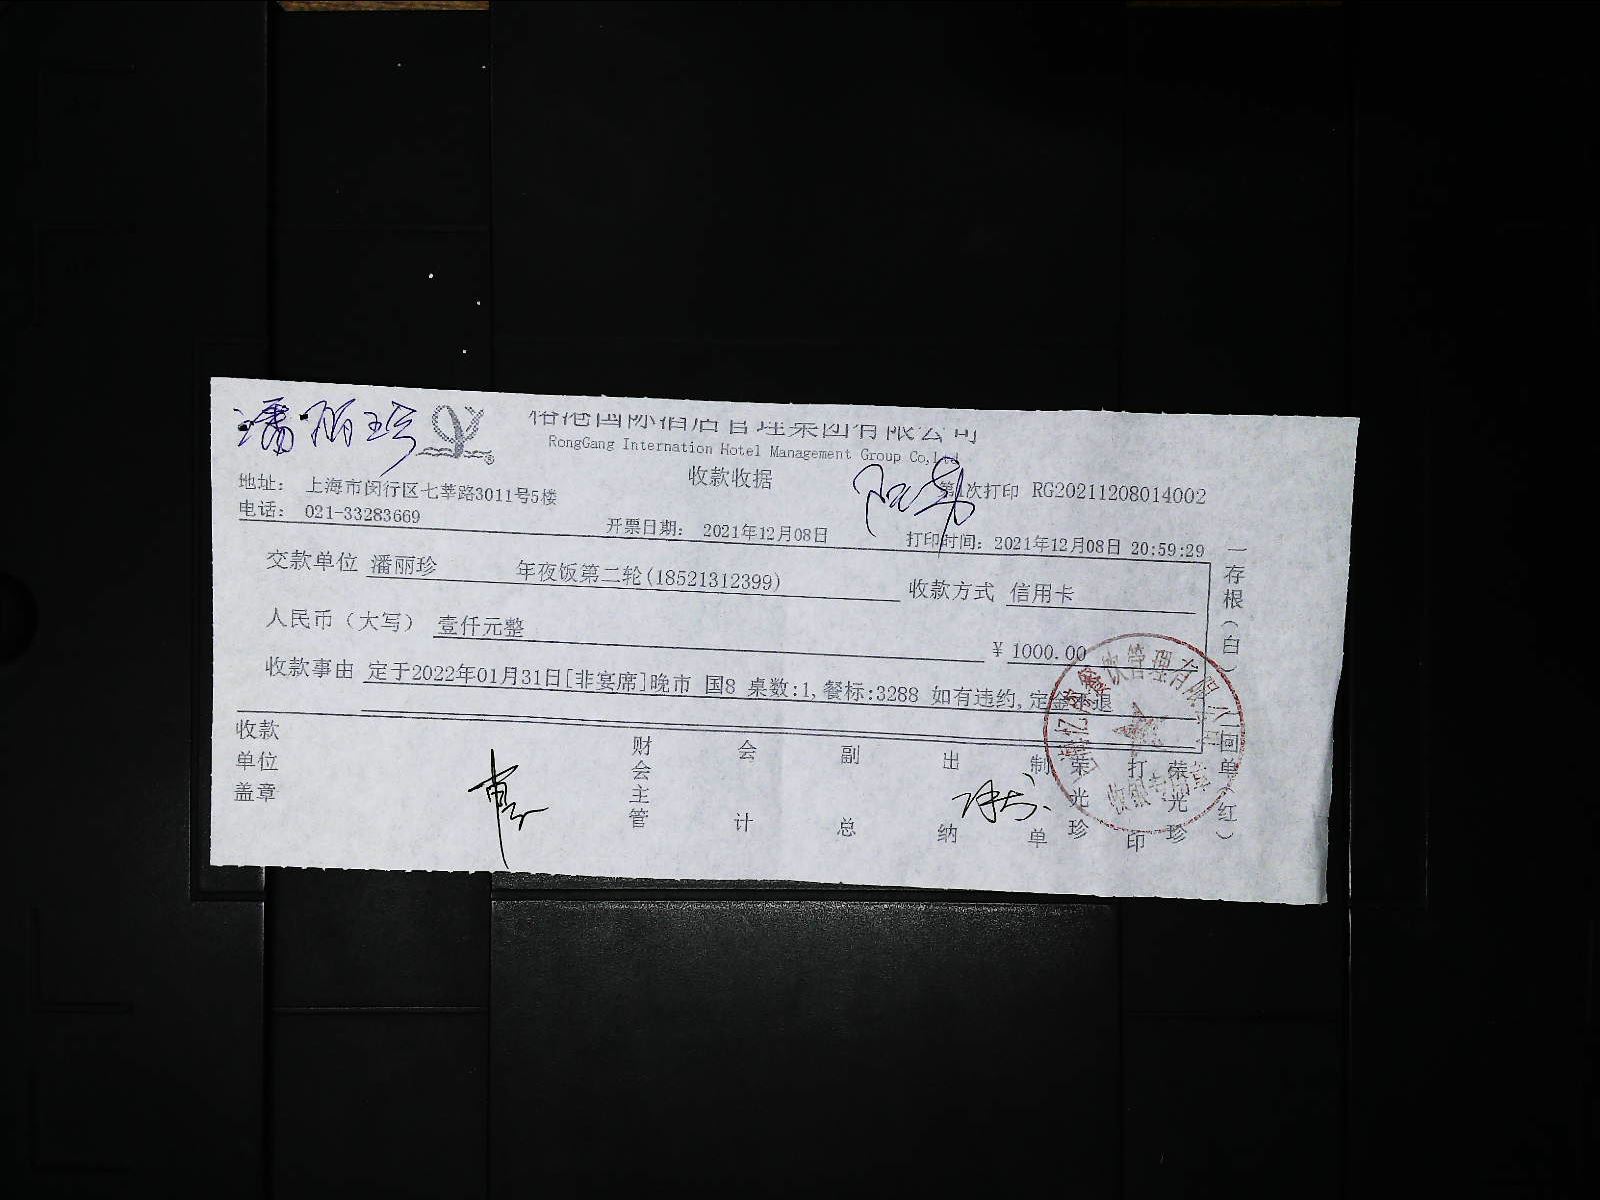 潘丽珍
榕港国际酒店管理集团有限公司
RongGang Internation Hotel Management Group Co,Ltd
收款收据
地址： 上海市闵行区七莘路3011号5楼
第1次打印 RG20211208014002
电话： 021-33283669
开票日期： 2021年12月08日
打印时间：2021年12月08日 20:59:29
交款单位 潘丽珍 年夜饭第二轮(18521312399) 收款方式 信用卡
人民币（大写） 壹仟元整 ¥ 1000.00
收款事由 定于2022年01月31日[非宴席]晚市 国8 桌数:1,餐标:3288 如有违约,定金不退
收款单位盖章 财会主管 会计 副总 出纳 制单 荣光珍 打印 荣光珍
一存根（白） 二回单（红）
餐饮管理有限公司
收银专用章